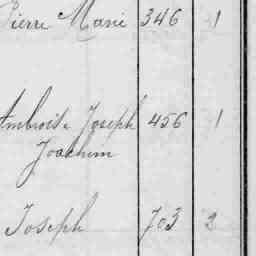 Pierre Marie 346 1
Ambroise Joseph 456 1
Joachim
Joseph 703 2